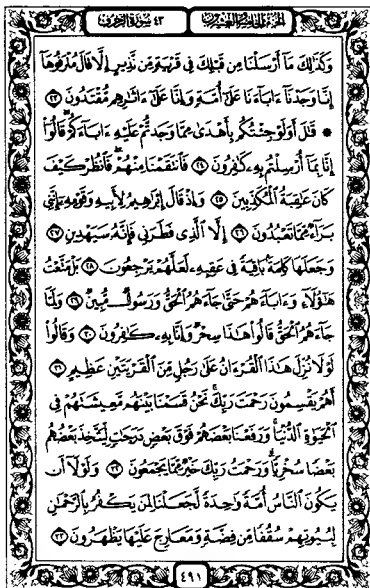 الجزء الخامس والعشرون
٤٣ سورة الزخرف
وَكَذَٰلِكَ مَآ أَرْسَلْنَا مِن قَبْلِكَ فِى قَرْيَةٍ مِّن نَّذِيرٍ إِلَّا قَالَ مُتْرَفُوهَآ
إِنَّا وَجَدْنَآ ءَابَآءَنَا عَلَىٰٓ أُمَّةٍ وَإِنَّا عَلَىٰٓ ءَاثَٰرِهِم مُّقْتَدُونَ ٢٣
۞ قَٰلَ أَوَلَوْ جِئْتُكُم بِأَهْدَىٰ مِمَّا وَجَدتُّمْ عَلَيْهِ ءَابَآءَكُمْ قَالُوٓا۟
إِنَّا بِمَآ أُرْسِلْتُم بِهِۦ كَٰفِرُونَ ٢٤ فَٱنتَقَمْنَا مِنْهُمْ فَٱنظُرْ كَيْفَ
كَانَ عَٰقِبَةُ ٱلْمُكَذِّبِينَ ٢٥ وَإِذْ قَالَ إِبْرَٰهِيمُ لِأَبِيهِ وَقَوْمِهِۦٓ إِنَّنِى
بَرَآءٌ مِّمَّا تَعْبُدُونَ ٢٦ إِلَّا ٱلَّذِى فَطَرَنِى فَإِنَّهُۥ سَيَهْدِينِ ٢٧
وَجَعَلَهَا كَلِمَةًۢ بَاقِيَةً فِى عَقِبِهِۦ لَعَلَّهُمْ يَرْجِعُونَ ٢٨ بَلْ مَتَّعْتُ
هَٰٓؤُلَآءِ وَءَابَآءَهُمْ حَتَّىٰ جَآءَهُمُ ٱلْحَقُّ وَرَسُولٌ مُّبِينٌ ٢٩ وَلَمَّا
جَآءَهُمُ ٱلْحَقُّ قَالُوا۟ هَٰذَا سِحْرٌ وَإِنَّا بِهِۦ كَٰفِرُونَ ٣٠ وَقَالُوا۟
لَوْلَا نُزِّلَ هَٰذَا ٱلْقُرْءَانُ عَلَىٰ رَجُلٍ مِّنَ ٱلْقَرْيَتَيْنِ عَظِيمٍ ٣١
أَهُمْ يَقْسِمُونَ رَحْمَتَ رَبِّكَ نَحْنُ قَسَمْنَا بَيْنَهُم مَّعِيشَتَهُمْ فِى
ٱلْحَيَوٰةِ ٱلدُّنْيَا وَرَفَعْنَا بَعْضَهُمْ فَوْقَ بَعْضٍ دَرَجَٰتٍ لِّيَتَّخِذَ بَعْضُهُم
بَعْضًا سُخْرِيًّا وَرَحْمَتُ رَبِّكَ خَيْرٌ مِّمَّا يَجْمَعُونَ ٣٢ وَلَوْلَآ أَن
يَكُونَ ٱلنَّاسُ أُمَّةً وَٰحِدَةً لَّجَعَلْنَا لِمَن يَكْفُرُ بِٱلرَّحْمَٰنِ
لِبُيُوتِهِمْ سُقُفًا مِّن فِضَّةٍ وَمَعَارِجَ عَلَيْهَا يَظْهَرُونَ ٣٣
٤٩١